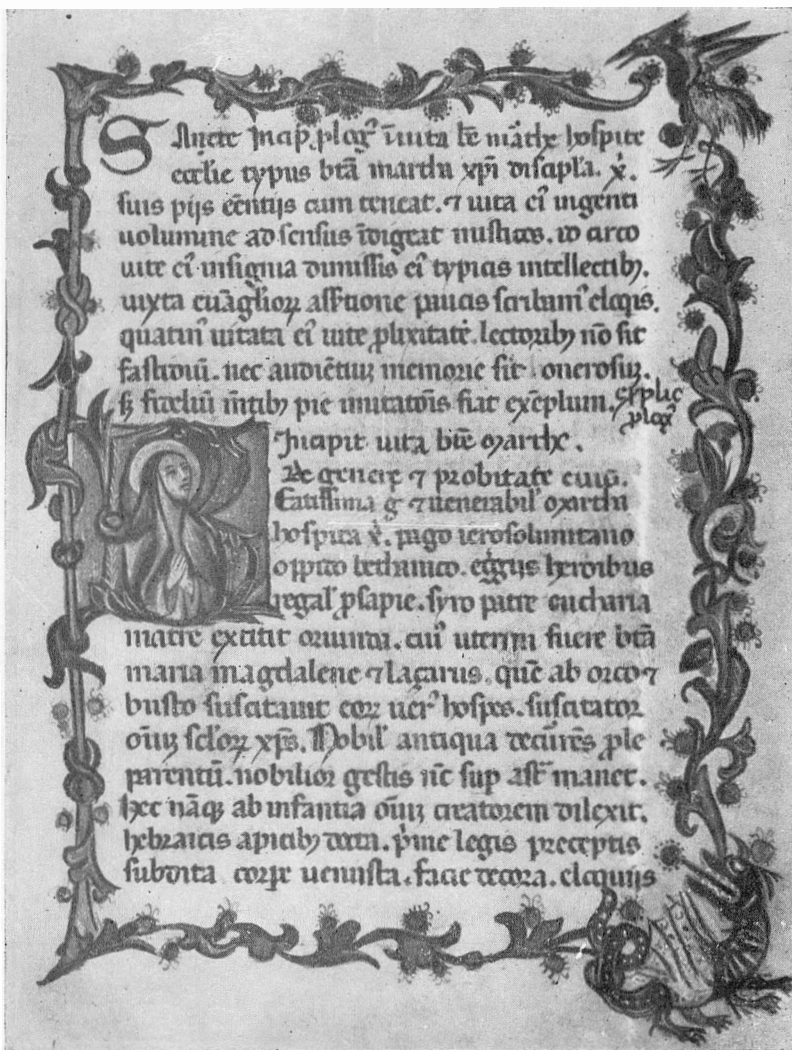 Sancte Incip. plog᷒ ī uita bē mar̄the hospite
ecclie typus btā martha xp̄i discipl̄a. x̄.
suis pijs cētijs cum teneat. ⁊ uita eiꝰ ingenti
uolumine ad sensus īdigeat mysticos. id circo
uite eiꝰ insignia dimissis eiꝰ typicis intellectibꝫ.
iuxta euāgl̄ioꝝ assr̄tione paucis scribimꝰ eloqis.
quatinꝰ uitata eiꝰ uite ꝓlixitate. lectoribꝫ nō sit
fastidiū. nec audiētiuꝫ memorie sit onerosuꝫ.
sꝫ fideliū mētibꝫ pie imitatōis fiat exēplum. explic
plog᷒
Incipit uita btē marthe.
De genere ⁊ probitate eiuꝰ.
Beatissima gͦ ⁊ uenerabil' martha
hospita x̄. pago ierosolimitano
oppido bethanico. egͣgijs heroibus
regal' ꝓsapie. syro patre eucharia
matre extitit oriunda. cuiꝰ uterini fuere btā
maria magdalene ⁊ laçarus. quē ab orco ⁊
busto suscitauit eoꝝ uerꝰ hospes. suscitator
oīuꝫ scl̄oꝝ xp̄s. Nobil' antiqua decurrēs ꝓle
parentū. nobilior gestis nc̄ sup astͣ manet.
hec nāqꝫ ab infantia oīuꝫ creatorem dilexit.
hebraicis apicibꝫ docta. pͥme legis preceptis
subdita corꝑe uenusta. facie decora. eloquijs